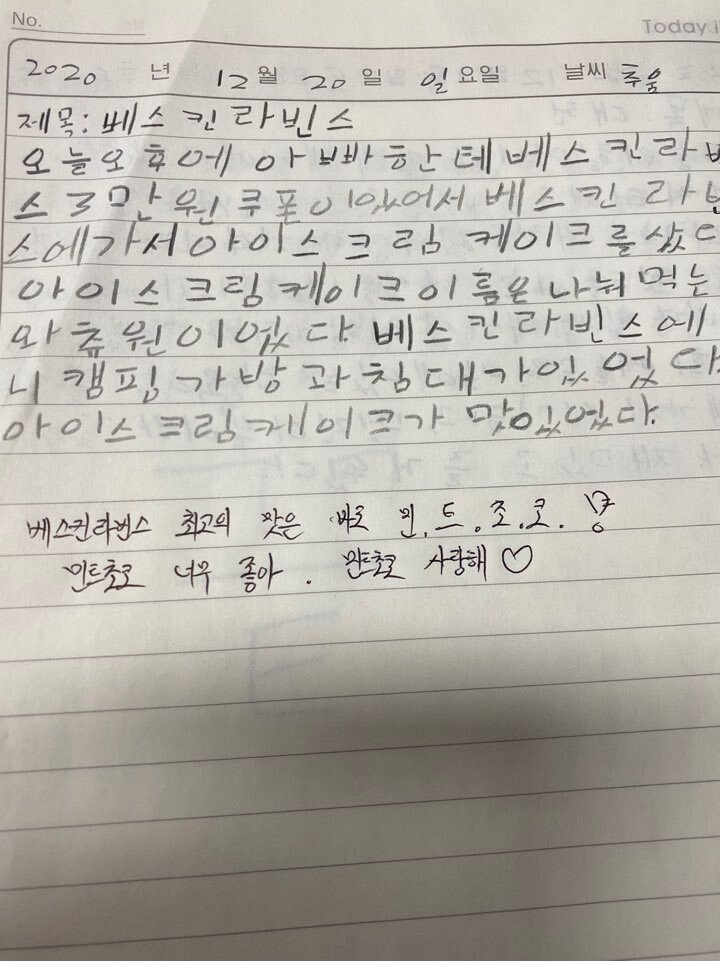 No.
Today i
2020 년 12 월 20 일 일 요일 날씨 추움
제목: 베스킨라빈스
오늘오후에 아빠한테 베스킨라
스 3만원 쿠폰이있어서 베스킨라빈
스에가서아이스크림 케이크를샀다
아이스크림케이크이름은 나눠먹는
와츄원이었다. 베스킨라빈스에
니 캠핑가방과침대가있었다
아이스크림케이크가 맛있었다.
베스킨라빈스 최고의 맛은 바로 민.트.초.코.
민트초코 너무 좋아. 민트초코 사랑해♡